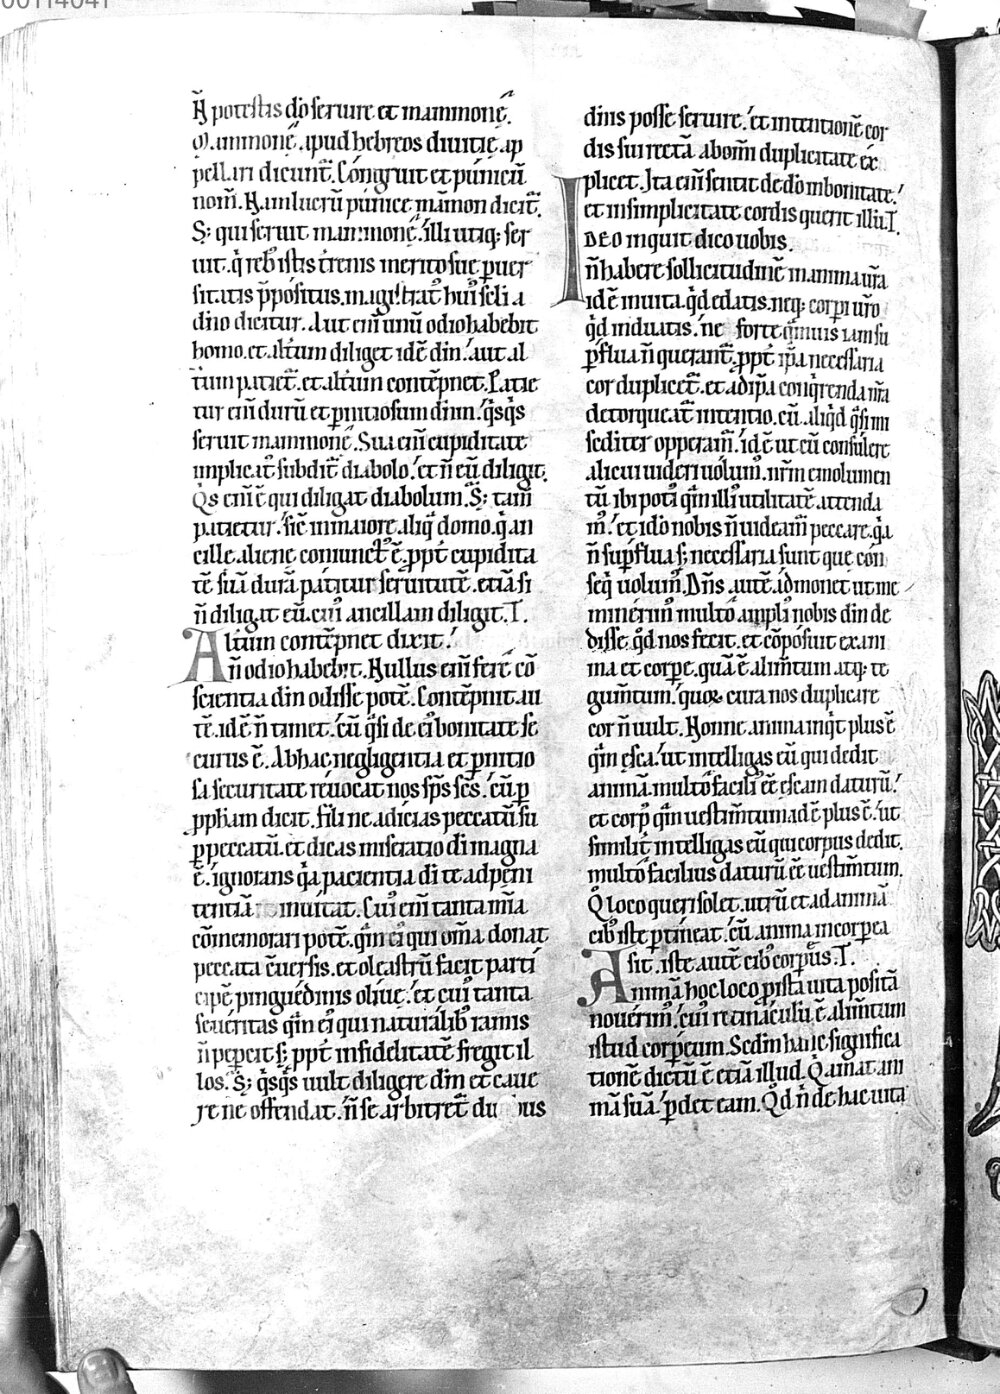 00114041
N̄ potestis d̄o seruire et mammonę.
Mammonę apud hebreos diuitię ap
pellari dicunt̄. Congruit et púnicū
nom̄. Nam lucrū púnice mámon dicit̄.
S; qui seruit mammonę. illi utiq; ser
uit. q̄ reb᷒ istis t̄renis merito suę puer
sitatis p̄pósitus. magistrat᷒ hui᷒ scl̄i a
dn̄o dicitur. Aut eni̅ unū odio habebit
homo. et alt̄um diliget idē din̄. aut al
t̄um patiet̄. et alt̄um contēpnet. Patie
tur eni̅ durū et p̱nitiosum dn̄m. q̄sq̄s
seruit mammonę. Sua eni̅ cupiditate
implicat᷒ subdit̄ diabolo. et n̄ eū diligit.
Qs eni̅ ē qui diligat diabolum. S; tam̄
patietur. sic̄ in maiore aliq̄ domo. q̄ an
cille alienę coniunct᷒ ē. ppt̄ cupidita
tē suā durā pátitur seruitutē. etiā si
n̄ diligit eū. cui᷒ ancillam diligit. T.
Alt̄um contēpnet dixit.
N̄ odio habebit. Nullus eni̅ ferē cō
scientia din̄ odisse potē. Contēpnit au
tē. idē n̄ timet. cū q̄si de ei᷒ bonitate se
curus ē. Ab hac negligentia et p̱nitio
sa securitate réuocat nos sp̄s sc̄s. cū p̱
pp̄ham dicit. Fili ne adícias peccatū su
p̱ peccatū. et dicas miseratio di̅ magna
ē. ignorans q̄a pacientia di̅ te ad peni
tentiā inuitat. Cui᷒ eni̅ tanta mīa
cōmemorari potē. q̄m ei᷒ qui om̄a donat
peccata cūersis. et oleastrū facit parti
cipē pinguédinis oliuę. et cui᷒ tanta
seuéritas q̄m ei᷒ qui naturálib᷒ ramis
n̄ pepcit s; ppt̄ infidelitatē fregit il
los. S; q̄sq̄s uult diligere dm̄ et caue
re ne offendat. n̄ se arbitret̄ duobus
din̄is posse seruire. et intentionē cor
dis sui rectā ab om̄i duplicitate ex
plicet. Ita eni̅ sentit de d̄o in bonitate.
et in simplicitate cordis querit illū. T.
IDEO inquit dico uobis.
n̄ habere sollicitudinē in anima ur̄a
id ē in uita. q̄d edatis. neq; corpi ur̄o
q̄d induatis. ne forte q̄muis iam su
p̱flua n̄ querant̄. ppt̄ ip̄a necessaria
cor duplicet̄. et ad ip̄a conq̄renda nr̄a
detorqueat̄ intentio. cū aliq̄d q̄si mi
sediter opperam̄. id ē ut cū consúlere
alicui uideri uólum᷒. nr̄m emolumen
tū ibi poti᷒ q̄m illi᷒ utilitatē attenda
m᷒. et idō nobis n̄ uideam̄ peccare. q̄a
n̄ sup̱flua s; necessaria sunt que con
seq̄ uolum᷒. Dn̄s autē admonet ut me
minérim᷒ multō ampli᷒ nobis din̄ de
disse. q̄d nos fecit. et cōpósuit ex ani
ma et corpe. quā ē alim̄tum atq; te
gum̄tum. quoꝝ cura nos duplicare
cor n̄ uult. Nonne anima inq̄t plus ē
q̄m esca. ut intelligas eū qui dedit
animā. multo facili᷒ ēē escam daturū.
et corp᷒ q̄m uestim̄tum id ē plus ē. ut
similit̄ intelligas eū qui corpus dedit.
multo facilius daturū ēē uestim̄tum.
Q loco queri solet. utrū et ad animā
cib᷒ iste p̱tineat. cū anima incorpea
sit. iste autē cib᷒ corpeus. T.
Animā hoc loco p̱ ista uita positā
nouérim᷒. cui᷒ retináculū ē alim̄tum
istud corpeum. Sed̄m hanc significa
tionē dictū ē etiā illud. Q amat ani
mā suā. p̱det eam. Qd n̄ de hac uita